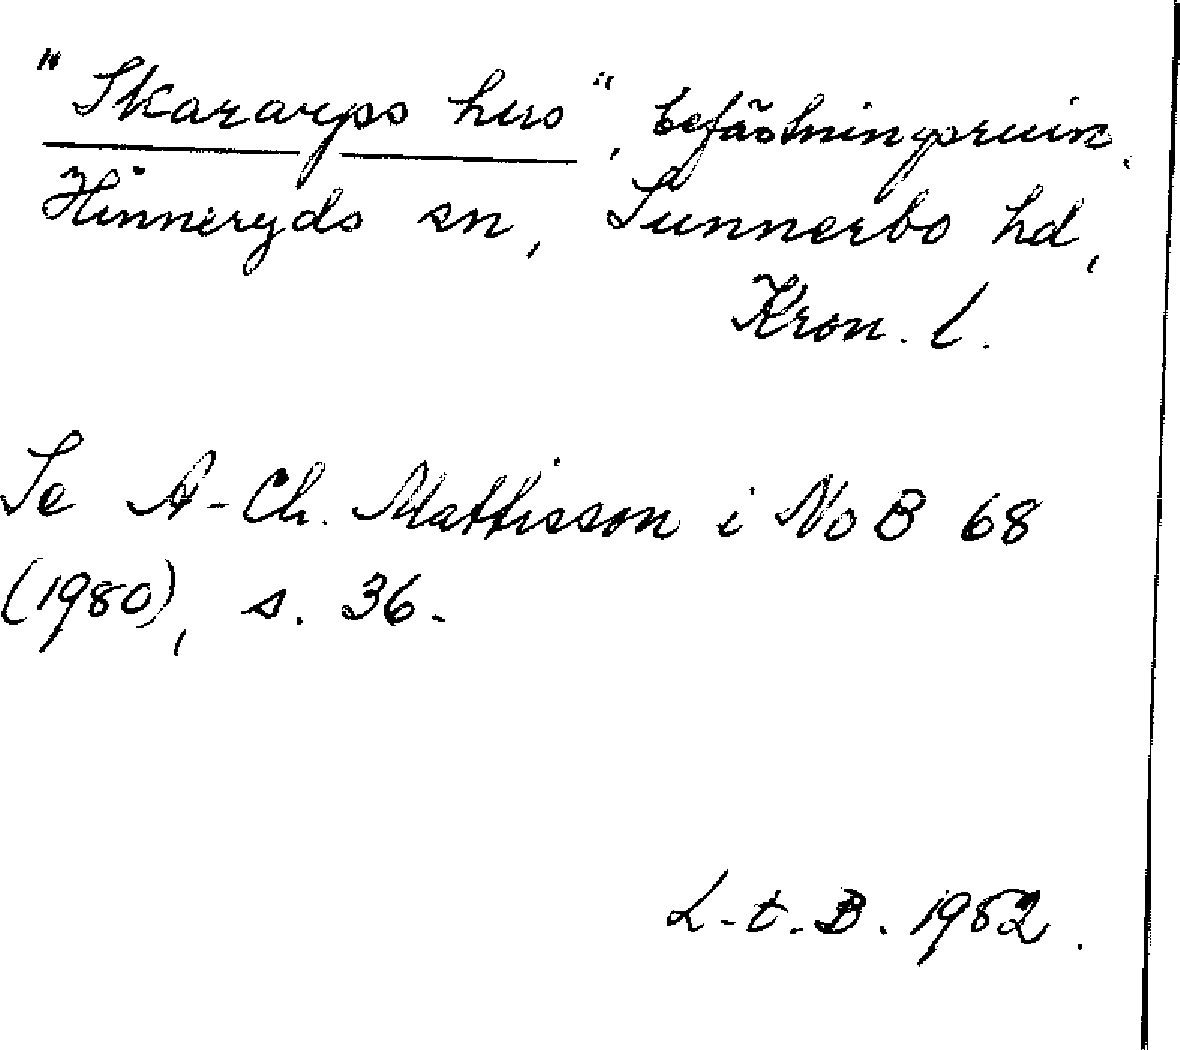 "Skararps hus", befästningsruin,
Hinneryds sn, Sunnerbo hd,
Kron. l.
Se A-Ch. Mattisson i NoB 68
(1980), s. 36.
L-t. B. 1982.